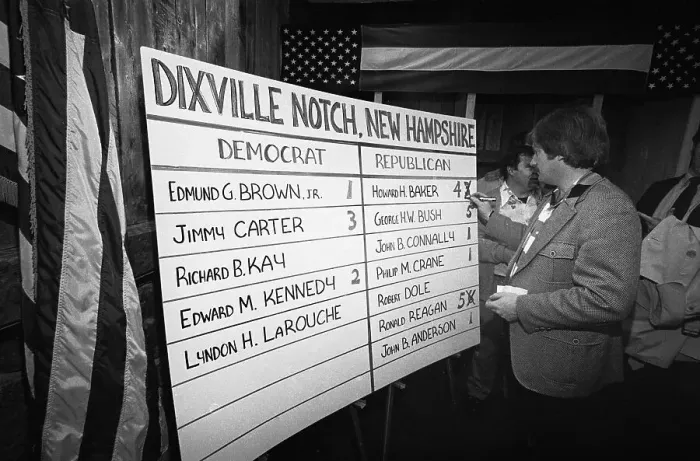 DIXVILLE NOTCH, NEW HAMPSHIRE
DEMOCRAT
EDMUND G. BROWN, JR. 1
JIMMY CARTER 3
RICHARD B. KAY
EDWARD M. KENNEDY 2
LYNDON H. LAROUCHE
REPUBLICAN
HOWARD H. BAKER 4
GEORGE H.W. BUSH
JOHN B. CONNALLY 1
PHILIP M. CRANE 1
ROBERT DOLE
RONALD REAGAN 5
JOHN B. ANDERSON 1